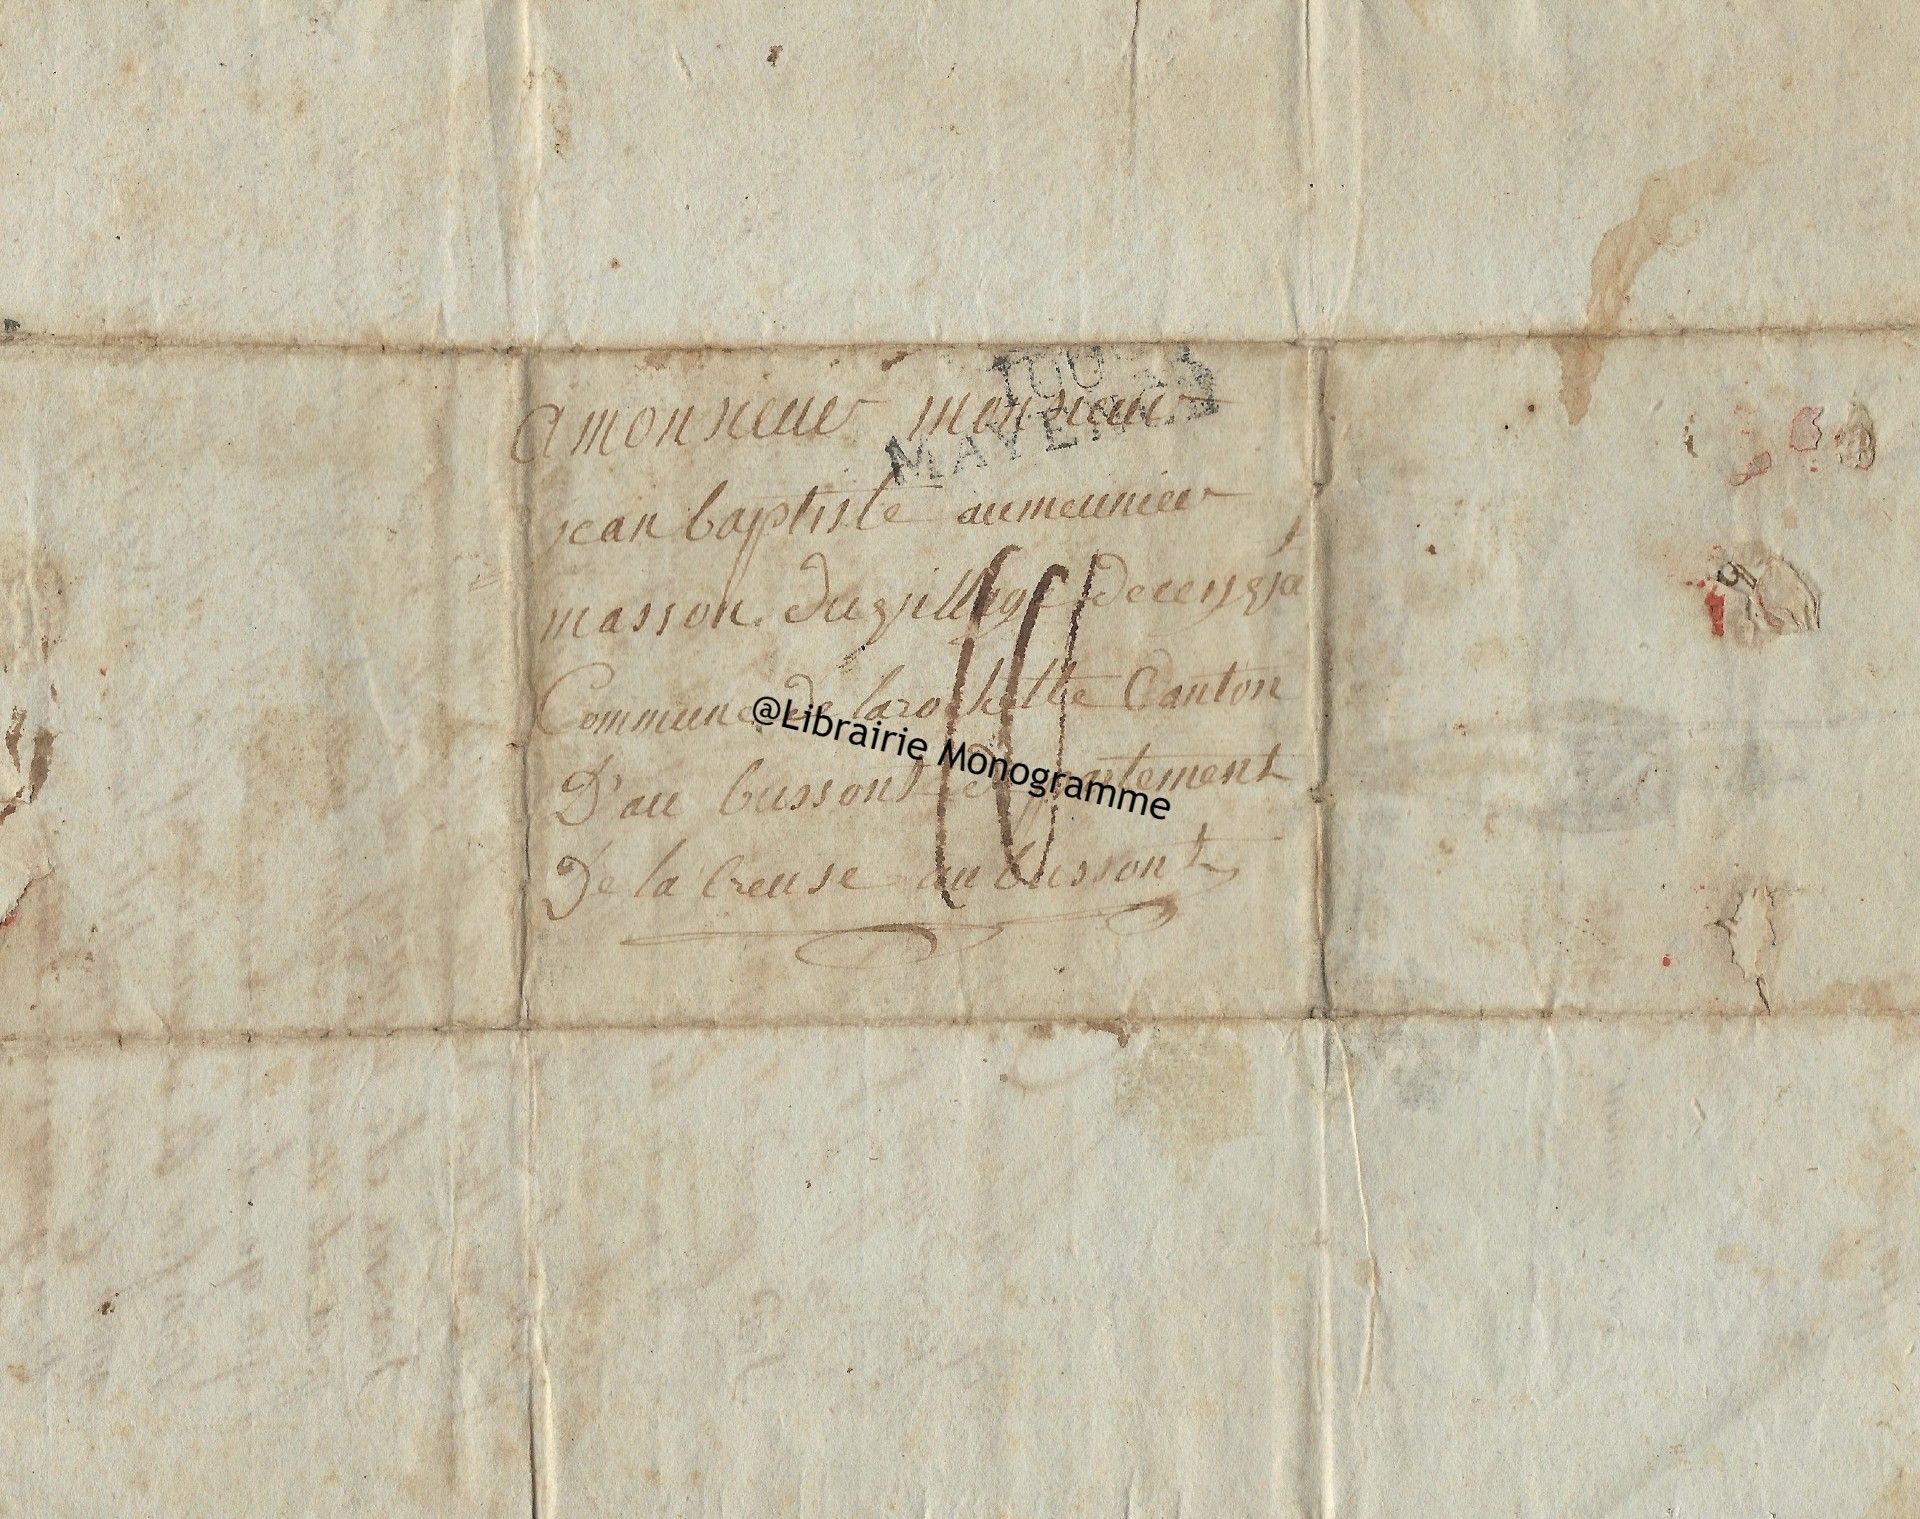 100
MAYENCE
a monsieur monsieur
jean baptiste aumeunier
masson du village
Commune de larochette Canton
D'au bussont departement
De la Creuse au bussont
@Librairie Monogramme